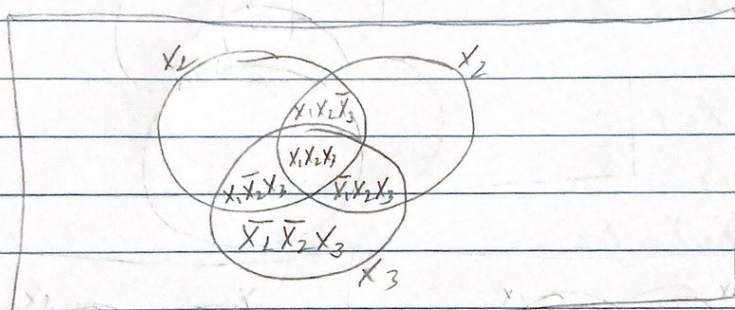 X₁
X₂
X₁X₂X̄₃
X₁X₂X₃
X₁X̄₂X₃
X̄₁X₂X₃
X̄₁ X̄₂ X₃
X₃